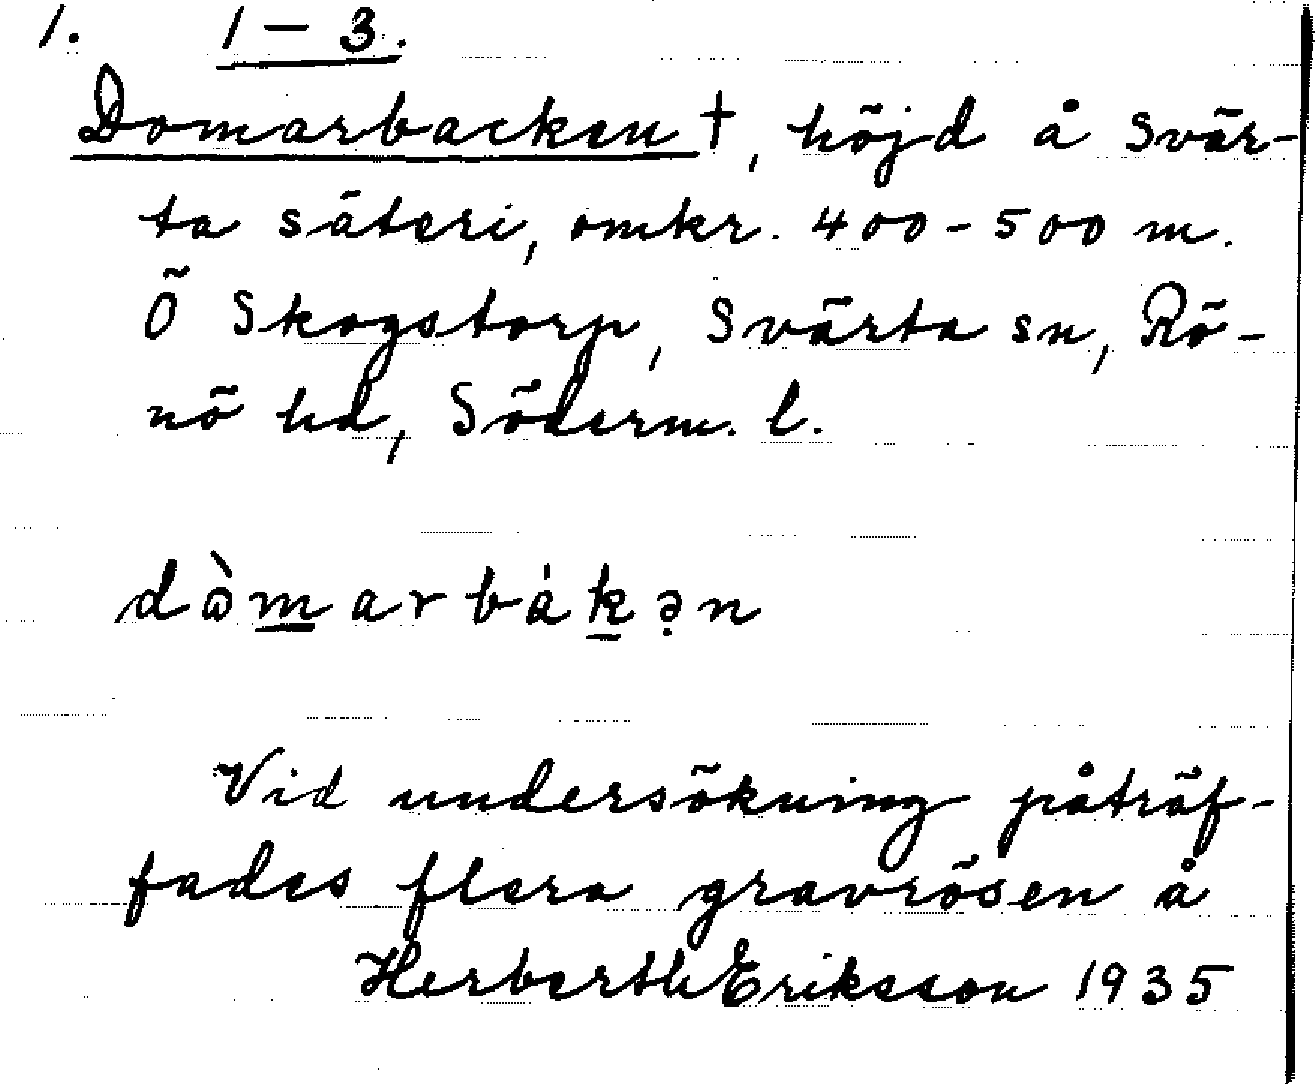 1. 1 – 3.
Domarbacken †, höjd å Svär-
ta säteri, omkr. 400-500 m.
Ö Skogstorp, Svärta sn, Rö-
nö hd, Söderm. l.
dòmarbákən
Vid undersökning påträf-
fades flera gravrösen å
Herberth Eriksson 1935